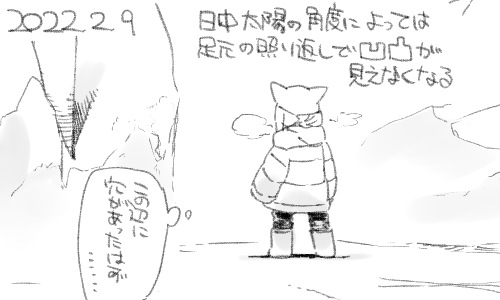 2022 2 9
日中太陽の角度によっては
足元の照り返しで凹凸が
見えなくなる
この辺に
穴があったはずだが
……